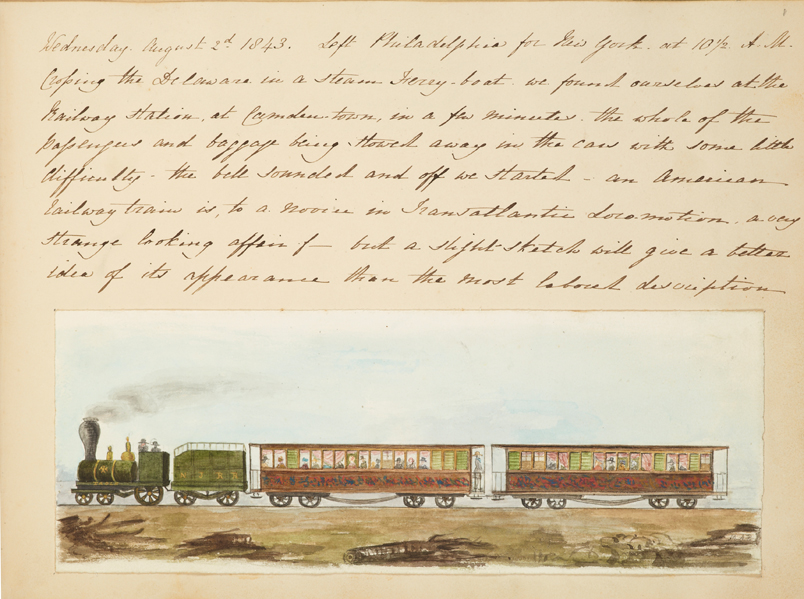 Wednesday. August 2d 1843. Left Philadelphia for New York. at 10½ A.M.
Crossing the Delaware in a steam Ferry-boat. we found ourselves at the
Railway Station, at Camden-town, in a few minutes. the whole of the
passengers and baggage being stowed away in the cars with some little
difficulty - the bell sounded and off we started - an American
railway train is, to a novice in Transatlantic Locomotion, a very
strange looking affair - but a slight sketch will give a better
idea of its appearance than the most labored description